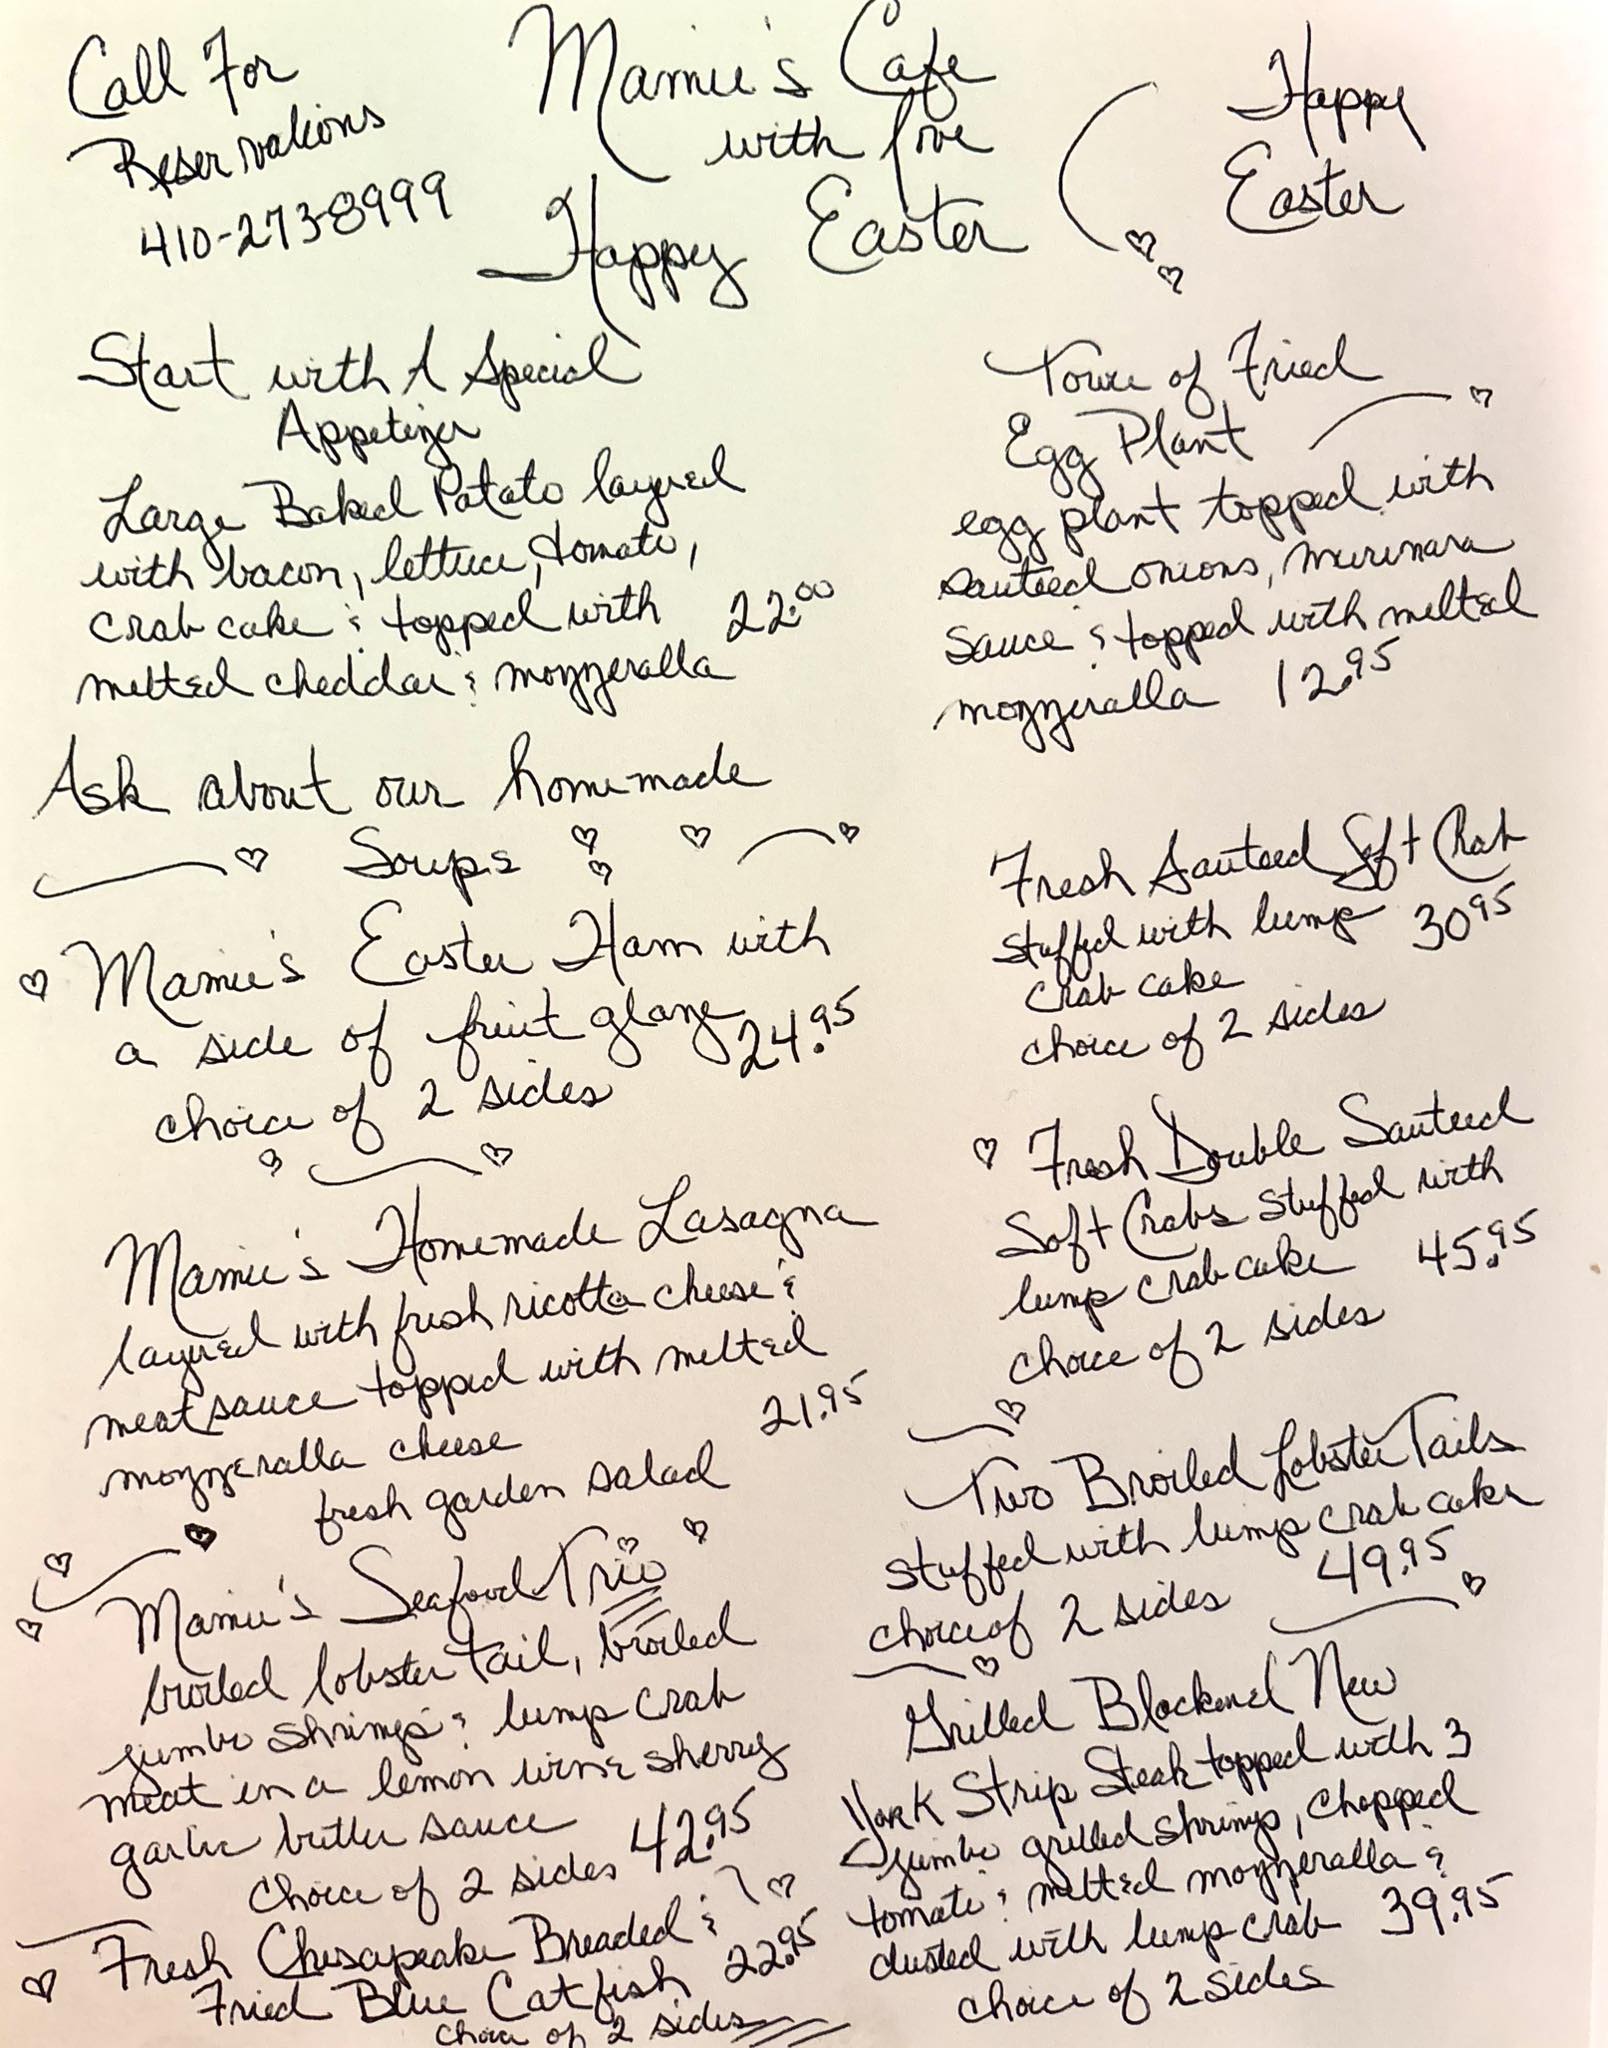 Call For
Reservations
410-273-8999
Mamie's Cafe
with love
Happy Easter
Happy
Easter
Start with A Special
Appetizer
Large Baked Potato layered
with bacon, lettuce, tomato,
crab cake & topped with 22.00
melted cheddar & mozzeralla
Ask about our homemade
Soups
Mamie's Easter Ham with
a side of fruit glaze 24.95
choice of 2 sides
Mamie's Homemade Lasagna
layered with fresh ricotta cheese &
meat sauce topped with melted
mozzeralla cheese 21.95
fresh garden salad
Mamie's Seafood Trio
broiled lobster tail, broiled
jumbo shrimp & lump crab
meat in a lemon wine sherry
garlic butter sauce 42.95
Choice of 2 sides
Fresh Chesapeake Breaded &
Fried Blue Catfish 22.95
choice of 2 sides
Tower of Fried
Egg Plant
egg plant topped with
sauteed onions, murinara
sauce & topped with melted
mozzeralla 12.95
Fresh Sauteed Soft Crab
stuffed with lump 30.95
crab cake
choice of 2 sides
Fresh Double Sauteed
Soft Crabs stuffed with
lump crab cake 45.95
choice of 2 sides
Two Broiled Lobster Tails
stuffed with lump crab cake
choice of 2 sides 49.95
Grilled Blackened New
York Strip Steak topped with 3
jumbo grilled shrimp, chopped
tomato & melted mozzeralla &
dusted with lump crab 39.95
choice of 2 sides